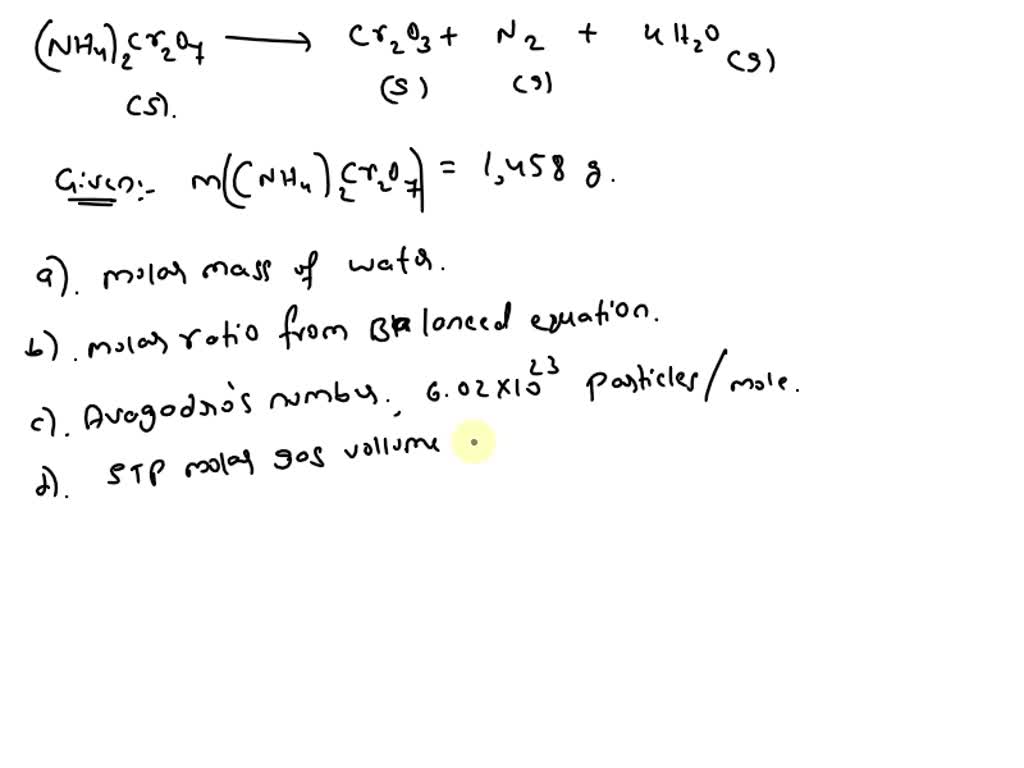 (NH4)2Cr2O7 ⟶ Cr2O3 + N2 + 4H2O
(s). (s) (g) (g)
Given:- m((NH4)2Cr2O7) = 1,458 g.
a). molar mass of water.
b). molar ratio from Balanced equation.
c). Avagodro's number, 6.02×10^23 particles/mole.
d). STP molar gas vollume